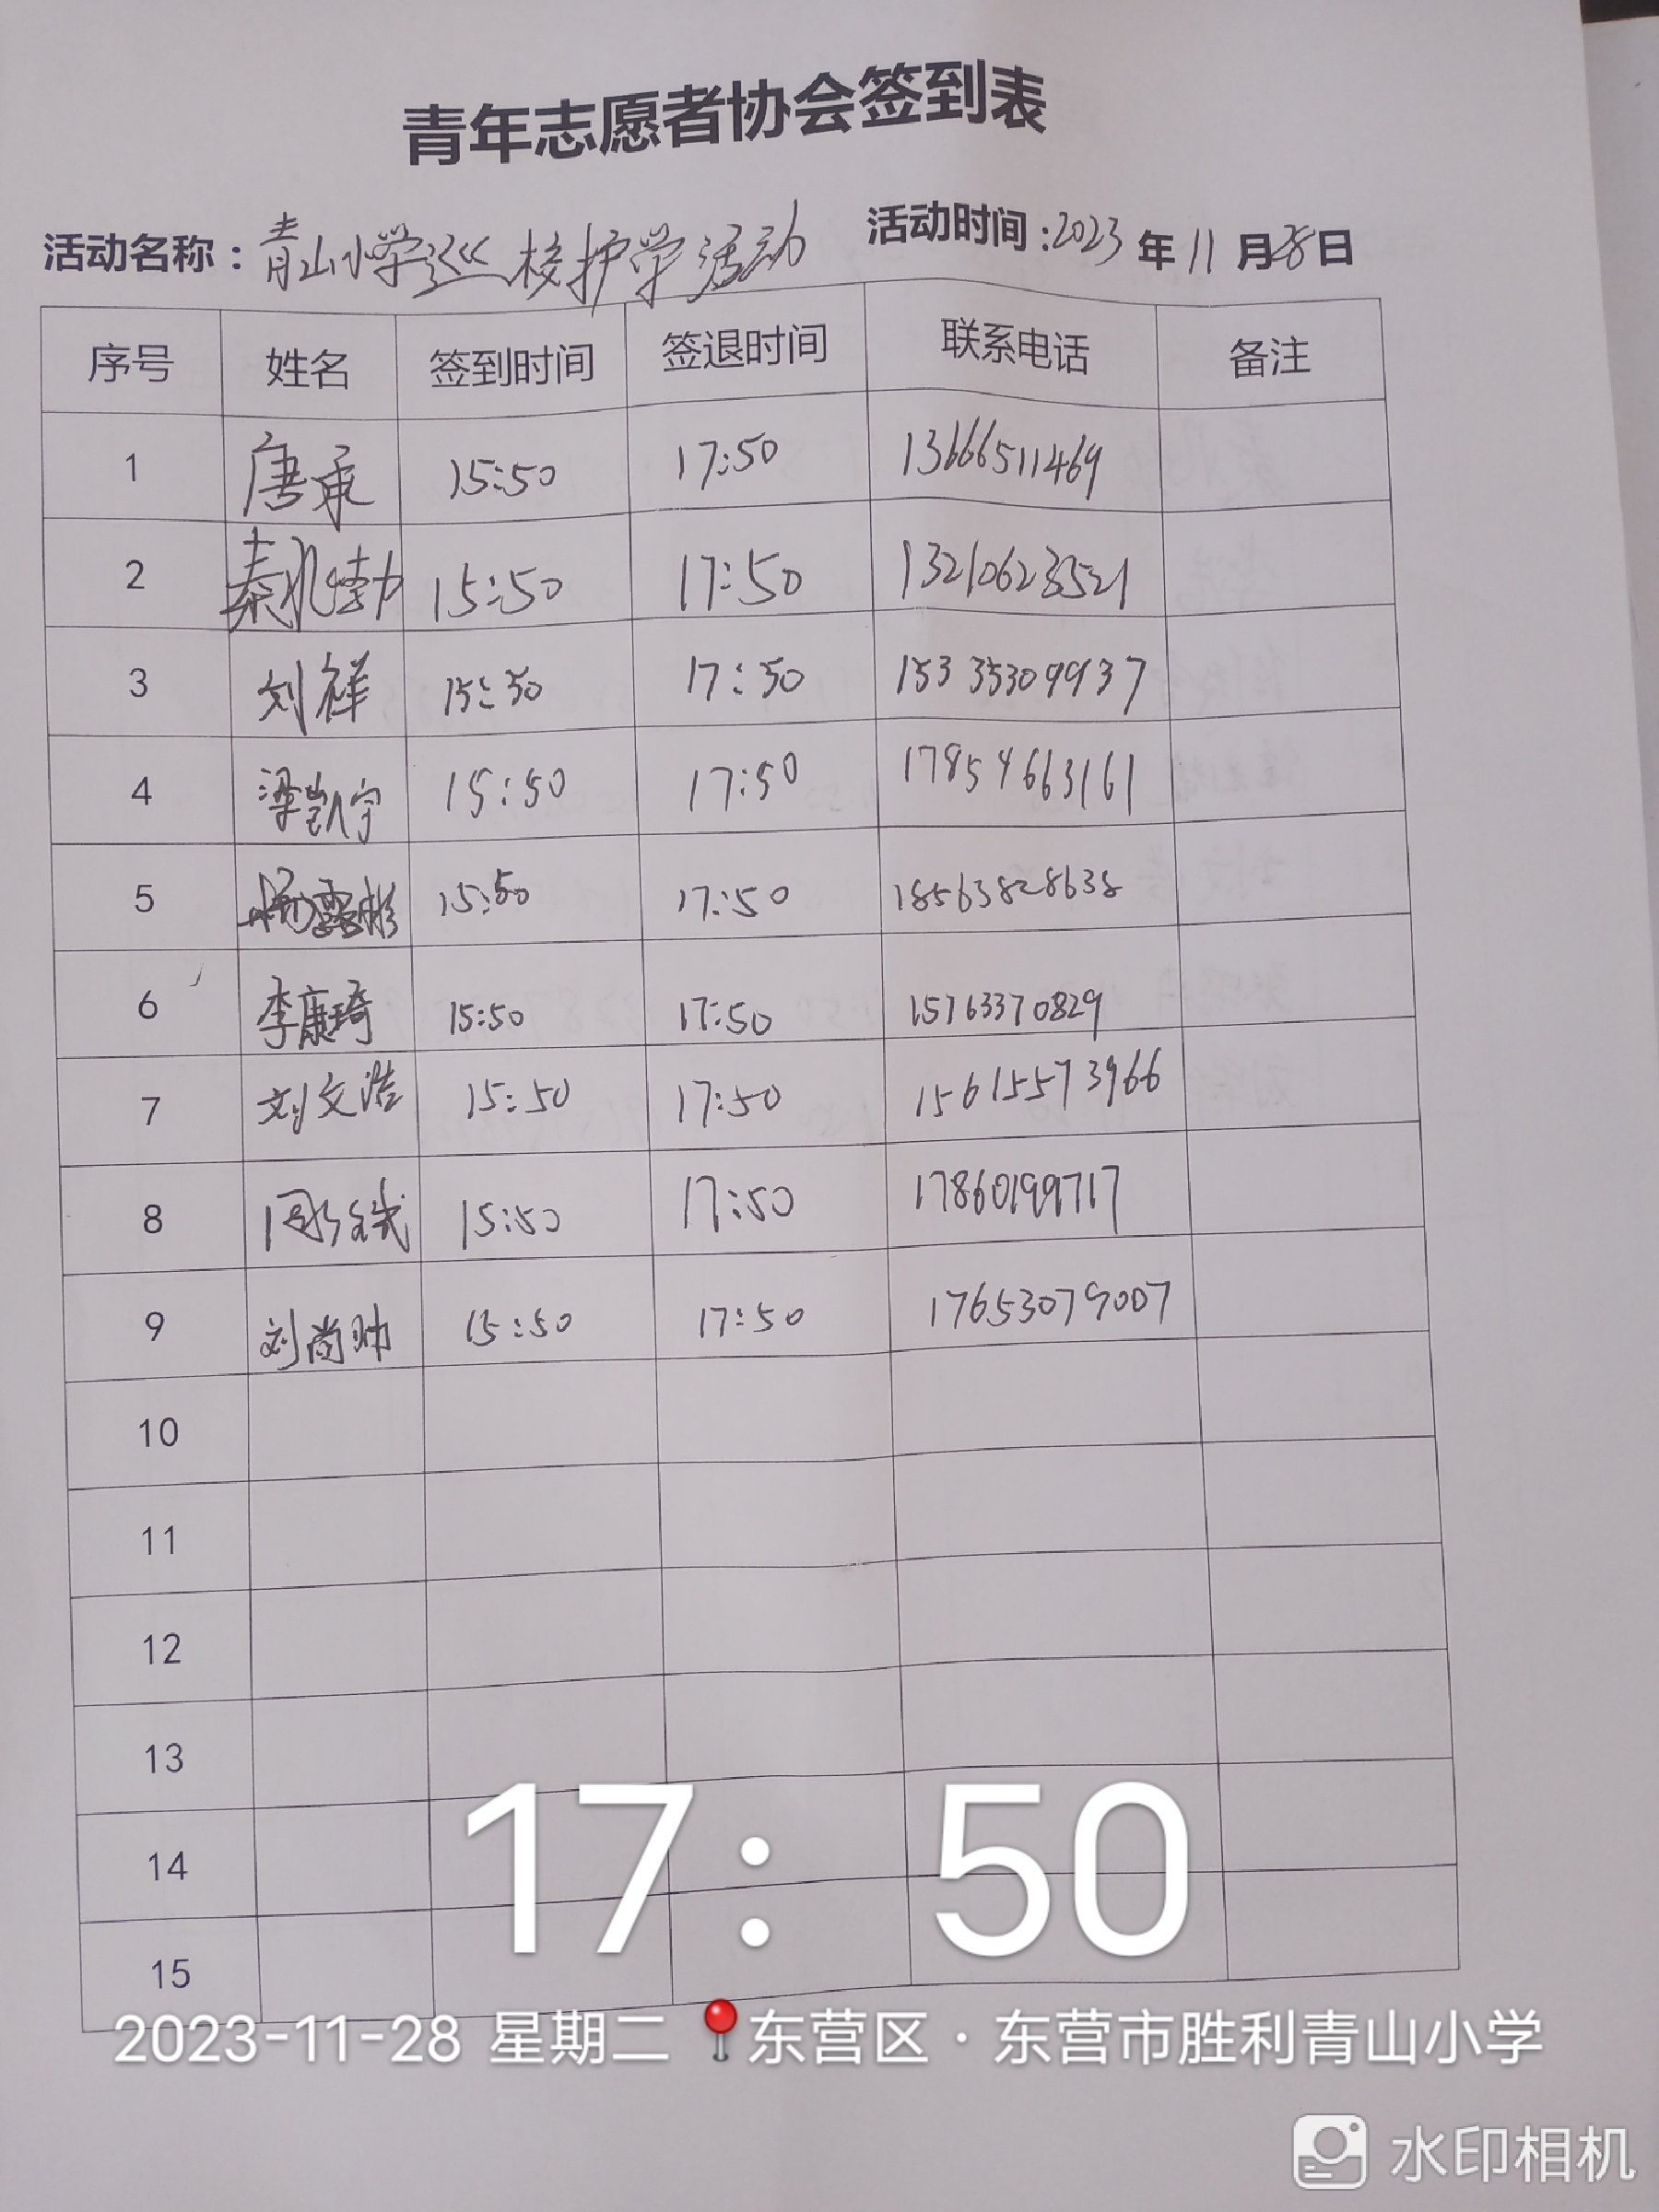 青年志愿者协会签到表
活动名称：青山小学巡校护学活动 活动时间：2023年11月28日
序号 姓名 签到时间 签退时间 联系电话 备注
1 唐承 15:50 17:50 13666511469
2 秦兆勃 15:50 17:50 13210623521
3 刘祥 15:50 17:50 15335309937
4 梁凯宇 15:50 17:50 17854663161
5 杨露彬 15:50 17:50 18563828638
6 李康琦 15:50 17:50 15763370829
7 刘文浩 15:50 17:50 15615573966
8 15:50 17:50 17860199717
9 刘尚帅 15:50 17:50 17653079007
10
11
12
13
14
15
17：50
2023-11-28 星期二 东营区·东营市胜利青山小学
水印相机